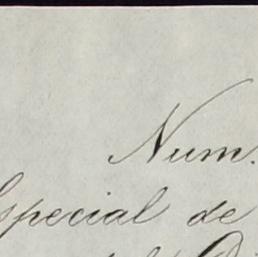 Num.
Especial de